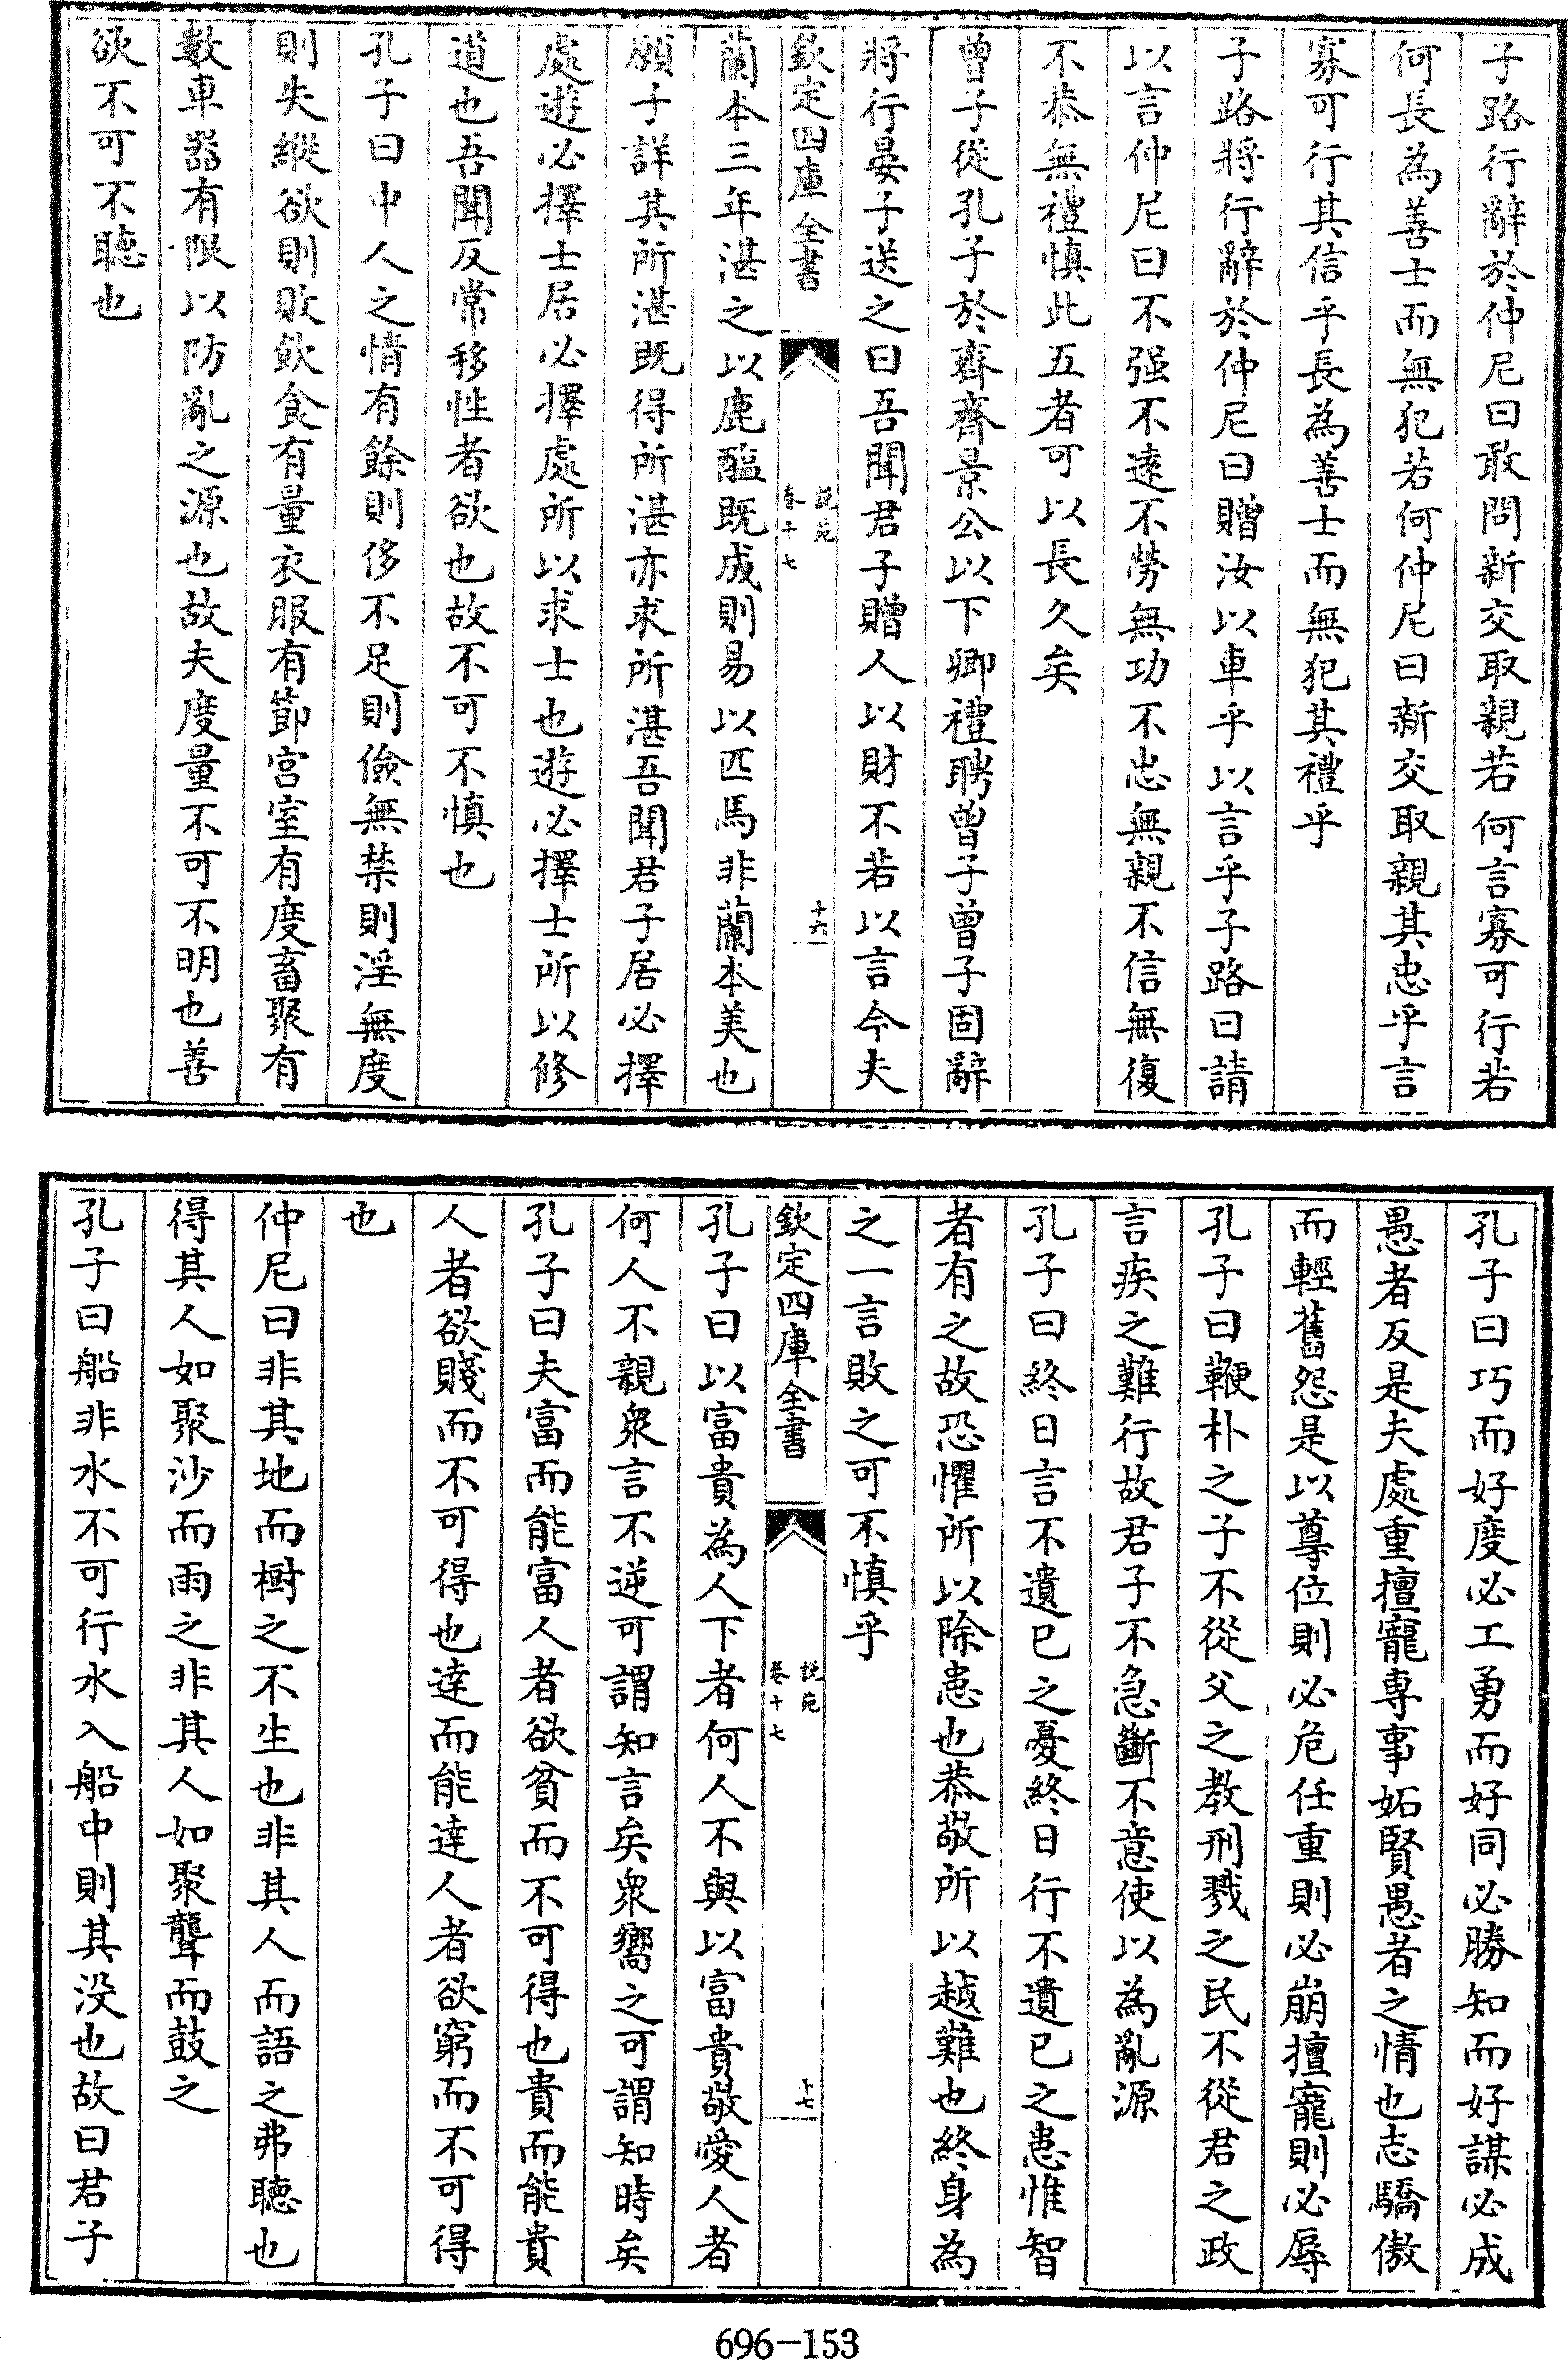 子路行辭於仲尼曰敢問新交取親若何言寡可行若
何長為善士而無犯若何仲尼曰新交取親其忠乎言
寡可行其信乎長為善士而無犯其禮乎
子路將行辭於仲尼曰贈汝以車乎以言乎子路曰請
以言仲尼曰不强不遠不勞無功不忠無親不信無復
不恭無禮慎此五者可以長久矣
曾子從孔子於齊齊景公以下卿禮聘曾子曾子固辭
將行晏子送之曰吾聞君子贈人以財不若以言今夫
欽定四庫全書
説苑
卷十七
十六
蘭本三年湛之以鹿醢既成則易以匹馬非蘭本美也
願子詳其所湛既得所湛亦求所湛吾聞君子居必擇
處遊必擇士居必擇處所以求士也遊必擇士所以修
道也吾聞反常移性者欲也故不可不慎也
孔子曰中人之情有餘則侈不足則儉無禁則淫無度
則失縱欲則敗飲食有量衣服有節宮室有度畜聚有
數車器有限以防亂之源也故夫度量不可不明也善
欲不可不聽也
孔子曰巧而好度必工勇而好同必勝知而好謀必成
愚者反是夫處重擅寵専事妬賢愚者之情也志驕傲
而輕舊怨是以尊位則必危任重則必崩擅寵則必辱
孔子曰鞭朴之子不從父之教刑戮之民不從君之政
言疾之難行故君子不急斷不意使以為亂源
孔子曰終日言不遺已之憂終日行不遺已之患惟智
者有之故恐懼所以除患也恭敬所以越難也終身為
之一言敗之可不慎乎
欽定四庫全書
説苑
卷十七
十七
孔子曰以富貴為人下者何人不與以富貴敬愛人者
何人不親衆言不逆可謂知言矣衆嚮之可謂知時矣
孔子曰夫富而能富人者欲貧而不可得也貴而能貴
人者欲賤而不可得也達而能達人者欲窮而不可得
也
仲尼曰非其地而樹之不生也非其人而語之弗聽也
得其人如聚沙而雨之非其人如聚聾而鼓之
孔子曰船非水不可行水入船中則其没也故曰君子
696-153